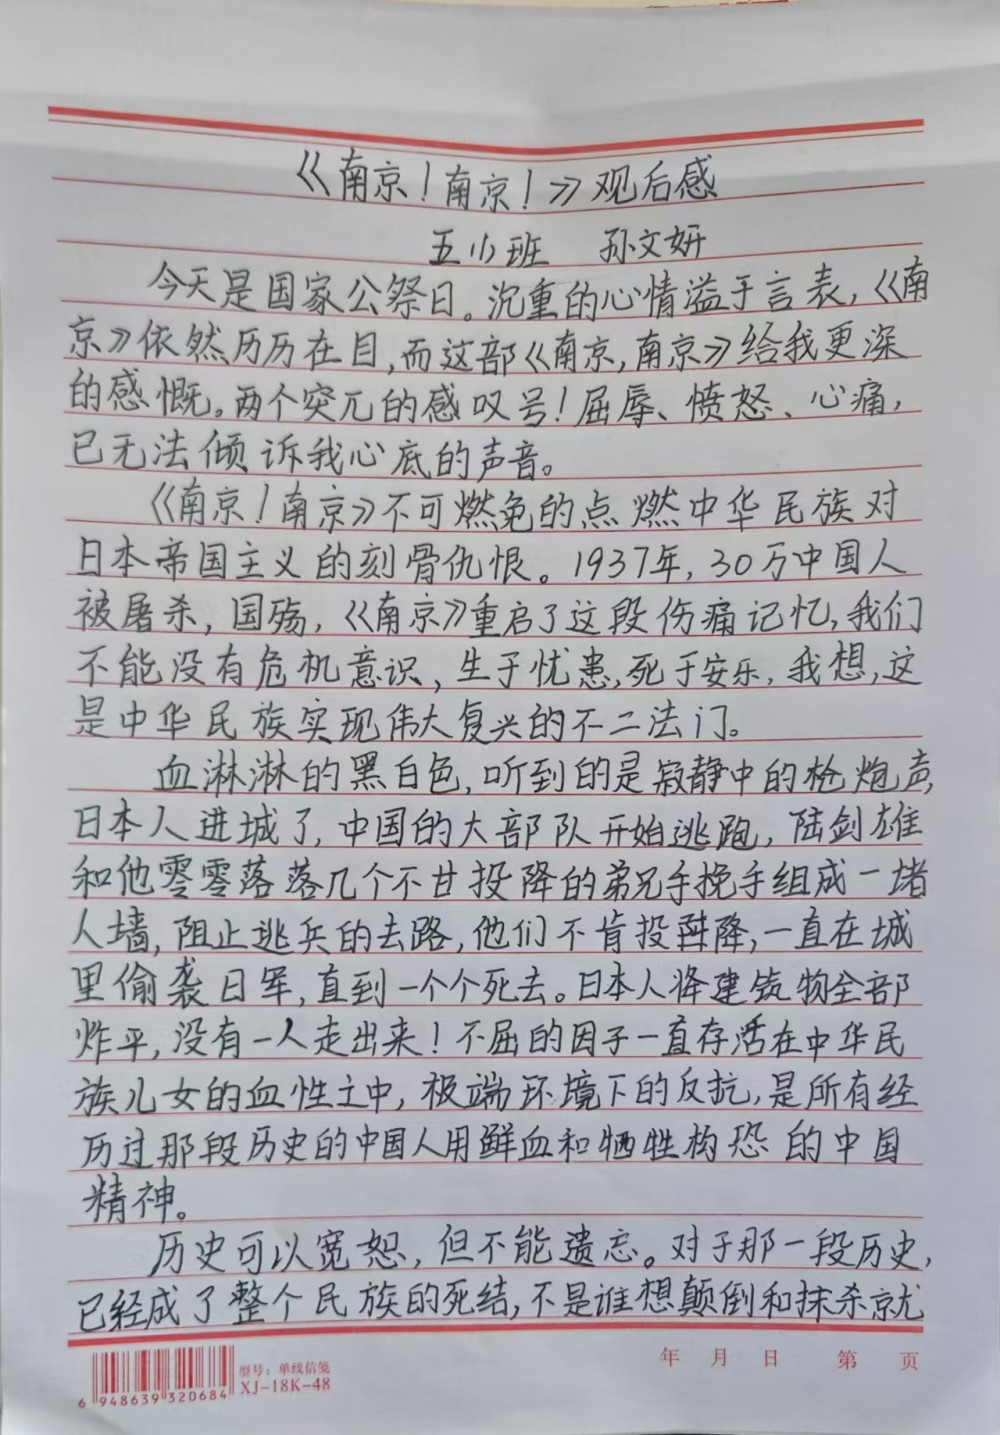 《南京！南京！》观后感
五小班 孙文妍
今天是国家公祭日。沉重的心情溢于言表，《南
京》依然历历在目，而这部《南京，南京》给我更深
的感慨。两个突兀的感叹号！屈辱、愤怒、心痛，
已无法倾诉我心底的声音。
《南京！南京》不可燃免的点燃中华民族对
日本帝国主义的刻骨仇恨。1937年，30万中国人
被屠杀，国殇，《南京》重启了这段伤痛记忆，我们
不能没有危机意识，生于忧患，死于安乐，我想，这
是中华民族实现伟大复兴的不二法门。
血淋淋的黑白色，听到的是寂静中的枪炮声，
日本人进城了，中国的大部队开始逃跑，陆剑雄
和他零零落落几个不甘投降的弟兄手挽手组成一堵
人墙，阻止逃兵的去路，他们不肯投降，一直在城
里偷袭日军，直到一个个死去。日本人将建筑物全部
炸平，没有一人走出来！不屈的因子一直存活在中华民
族儿女的血性之中，极端环境下的反抗，是所有经
历过那段历史的中国人用鲜血和牺牲构恐的中国
精神。
历史可以宽恕，但不能遗忘。对于那一段历史，
已经成了整个民族的死结，不是谁想颠倒和抹杀就
年 月 日 第 页
型号：单线信笺
XJ-18K-48
6 948639 320684